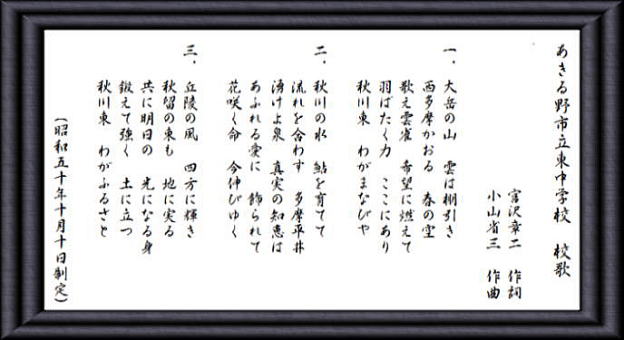 あきる野市立東中学校　校歌
宮沢章二　作詞
小山省三　作曲
一、大岳の山　雲は棚引き
西多摩かおる　春の空
歌え雲雀　希望に燃えて
羽ばたく力　ここにあり
秋川東　わがまなびや
二、秋川の水　鮎を育てて
流れを合わす　多摩平井
湧けよ泉　真実の知恵は
あふれる愛に　飾られて
花咲く命　今伸びゆく
三、丘陵の風　四方に輝き
秋留の東も　地に実る
共に明日の　光になる身
鍛えて強く　土に立つ
秋川東　わがふるさと
（昭和五十年十月十日制定）